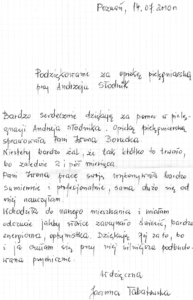 Poznań, 14.07.2010r.
Podziękowanie za opiekę pielęgniarską
przy Andrzeju Słodnik
Bardzo serdecznie dziękuję za pomoc w pielę-
gnacji Andrzeja Słodnika. Opiekę pielęgniarską
sprawowała Pani Iwona
Niestety bardzo żal, że tak krótko to trwało,
bo zaledwie 2 i pół miesiąca
Pani Iwona pracę swoją wykonywała bardzo
sumiennie i profesjonalnie, sama dużo się od
niej nauczyłam.
Wchodziła do naszego mieszkania i miałam
odczucie jakby słońce zaczynało świecić, bardzo
energiczna, optymistka. Dziękuję Jej za to, bo
i ja czułam się przy niej silniejsza podbudo-
wana psychicznie.
Wdzięczna
Joanna